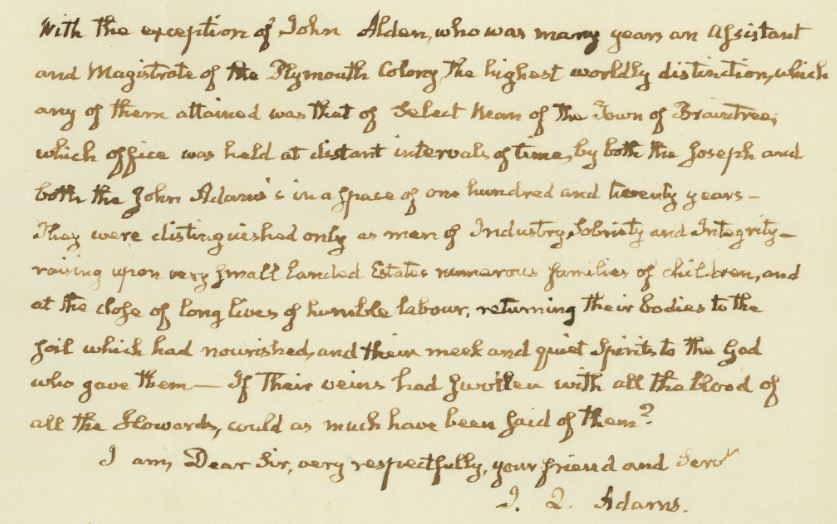 With the exception of John Alden, who was many years an Assistant
and Magistrate of the Plymouth Colony, the highest worldly distinction, which
any of them attained was that of Select Man of the Town of Braintree;
which office was held at distant intervals of time, by both the Joseph and
both the John Adams's in a space of one hundred and twenty years —
They were distinguished only as men of Industry, Sobriety and Integrity —
raising upon very small landed Estates numerous families of children, and
at the close of long lives of humble labour, returning their bodies to the
soil which had nourished, and their meek and quiet Spirits to the God
who gave them — If Their veins had swollen with all the blood of
all the Howards, could as much have been said of them?
I am, Dear Sir, very respectfully, your friend and Servt
J. Q. Adams.